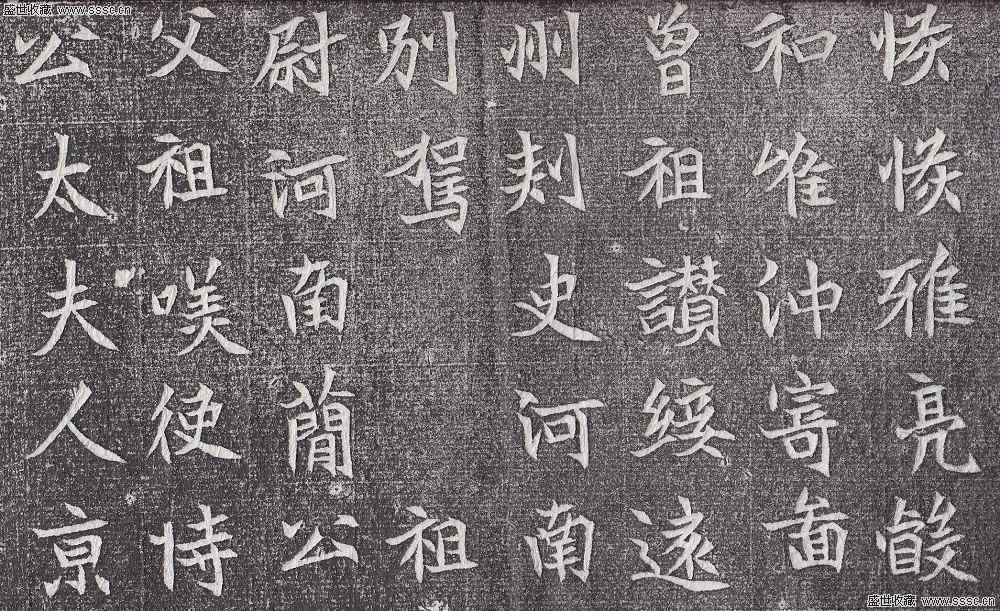 盛世收藏 www.sssc.cn
恢恢雅亮叡
和唯沖寄啚
曾祖讃綏遠
州刾史河南
別駕 祖
尉河南簡公
父祖咲使持
公太夫人京
盛世收藏 www.sssc.cn